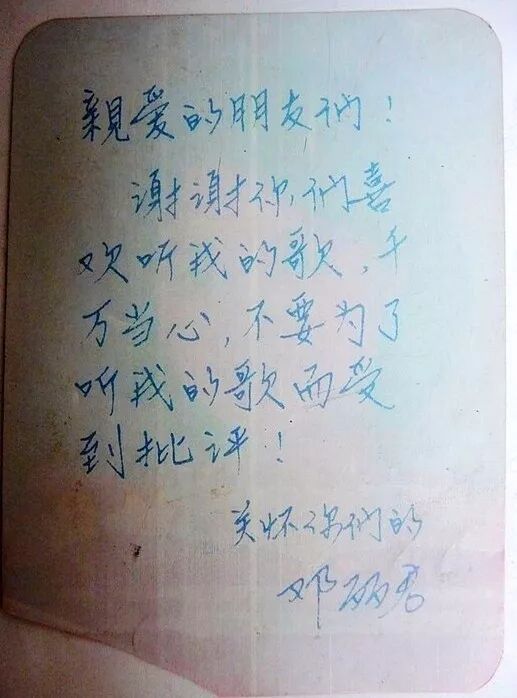 親爱的朋友们！
谢谢你们喜
欢听我的歌，千
万当心，不要为了
听我的歌而受
到批评！
关怀你们的
邓丽君